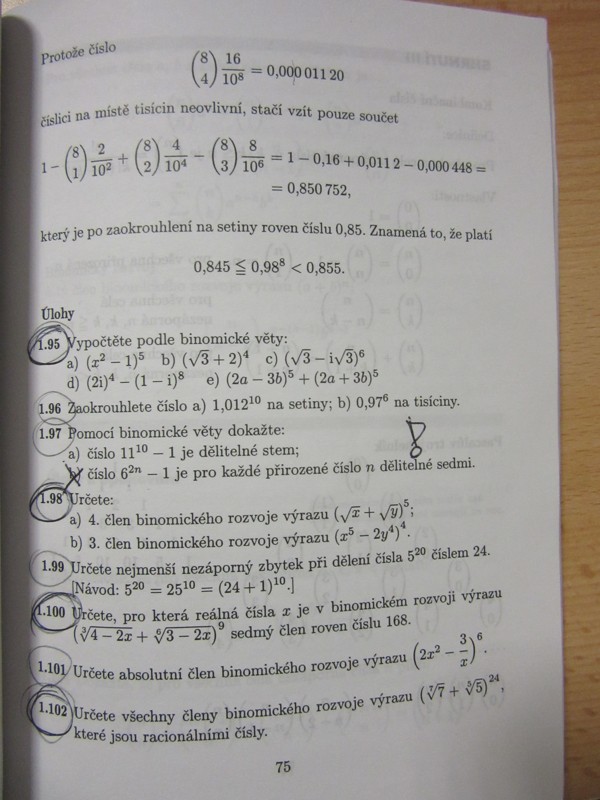 Protože číslo
(8 4) 16/10⁸ = 0,000 011 20
číslici na místě tisícin neovlivní, stačí vzít pouze součet
1 − (8 1) 2/10² + (8 2) 4/10⁴ − (8 3) 8/10⁶ = 1 − 0,16 + 0,011 2 − 0,000 448 =
= 0,850 752,
který je po zaokrouhlení na setiny roven číslu 0,85. Znamená to, že platí
0,845 ≦ 0,98⁸ < 0,855.
Úlohy
1.95 Vypočtěte podle binomické věty:
a) (x² − 1)⁵ b) (√3 + 2)⁴ c) (√3 − i√3)⁶
d) (2i)⁴ − (1 − i)⁸ e) (2a − 3b)⁵ + (2a + 3b)⁵
1.96 Zaokrouhlete číslo a) 1,012¹⁰ na setiny; b) 0,97⁶ na tisíciny.
1.97 Pomocí binomické věty dokažte:
a) číslo 11¹⁰ − 1 je dělitelné stem;
b) číslo 6²ⁿ − 1 je pro každé přirozené číslo n dělitelné sedmi.
1.98 Určete:
a) 4. člen binomického rozvoje výrazu (√x + √y)⁵;
b) 3. člen binomického rozvoje výrazu (x⁵ − 2y⁴)⁴.
1.99 Určete nejmenší nezáporný zbytek při dělení čísla 5²⁰ číslem 24.
[Návod: 5²⁰ = 25¹⁰ = (24 + 1)¹⁰.]
1.100 Určete, pro která reálná čísla x je v binomickém rozvoji výrazu
(∛(4 − 2x) + ⁶√(3 − 2x))⁹ sedmý člen roven číslu 168.
1.101 Určete absolutní člen binomického rozvoje výrazu (2x² − 3/x)⁶.
1.102 Určete všechny členy binomického rozvoje výrazu (⁷√7 + ⁵√5)²⁴,
které jsou racionálními čísly.
75